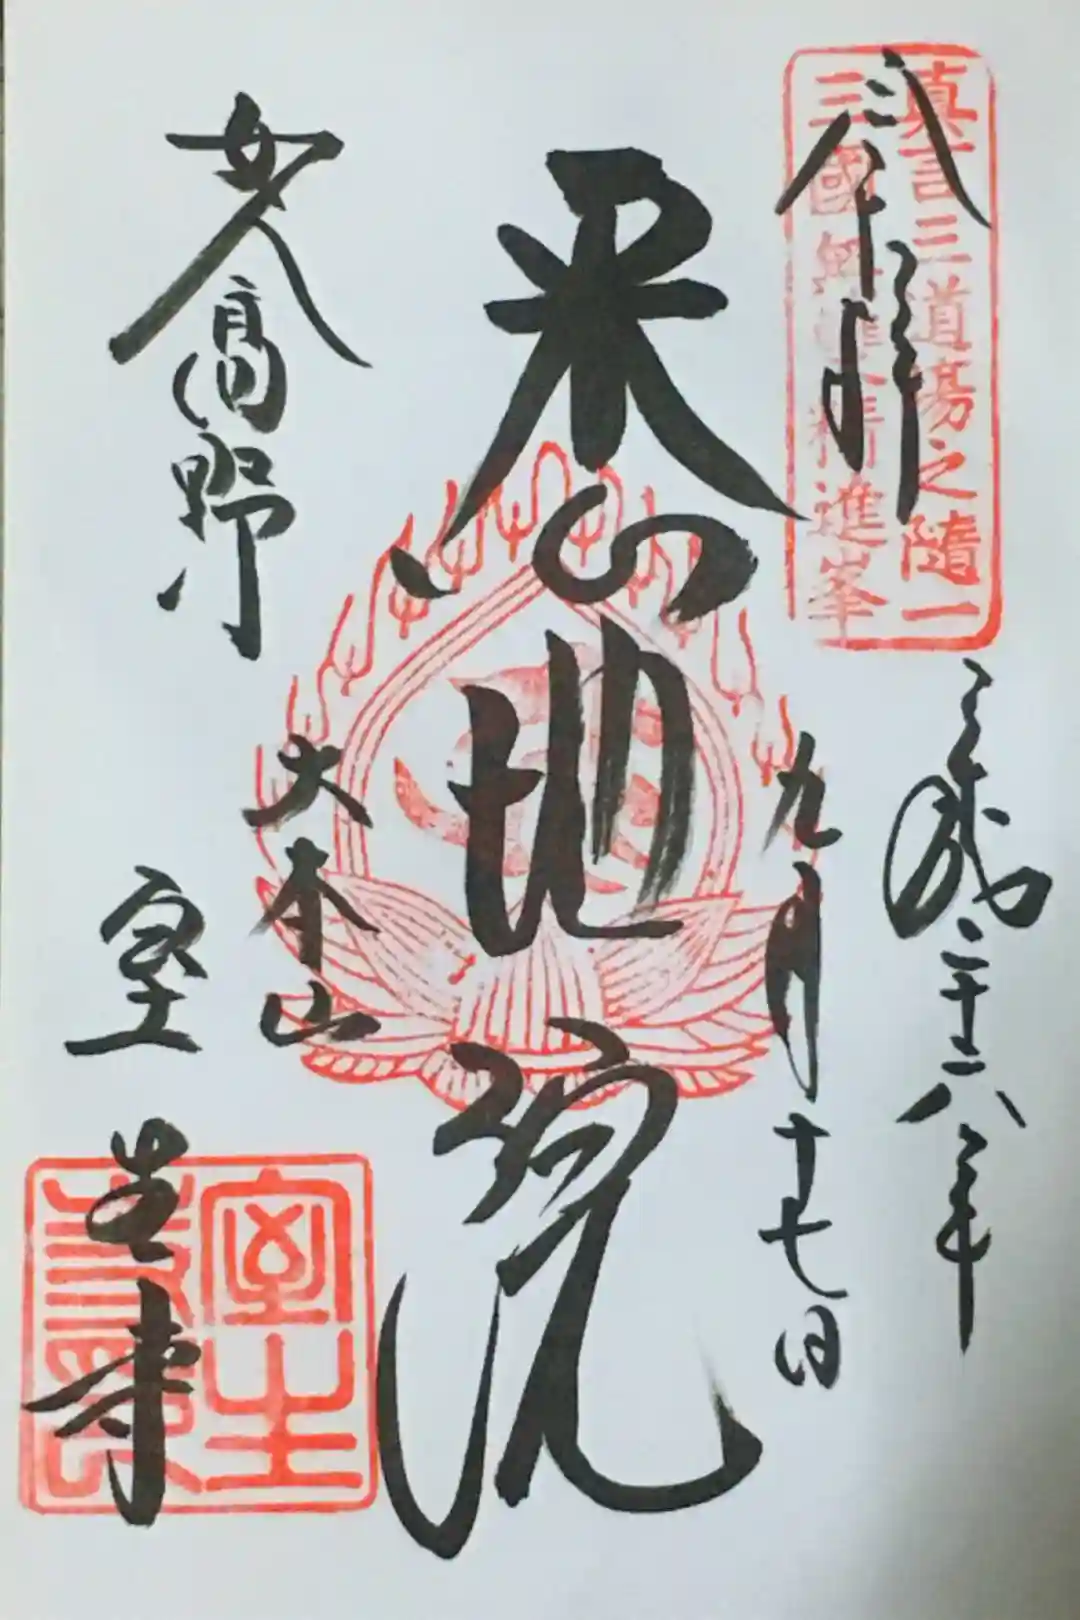 真言三道場之随一
三國無雙精進峯
奉拝
平成二十八年
九月十七日
悉地院
女人高野
大本山
室生寺
室生